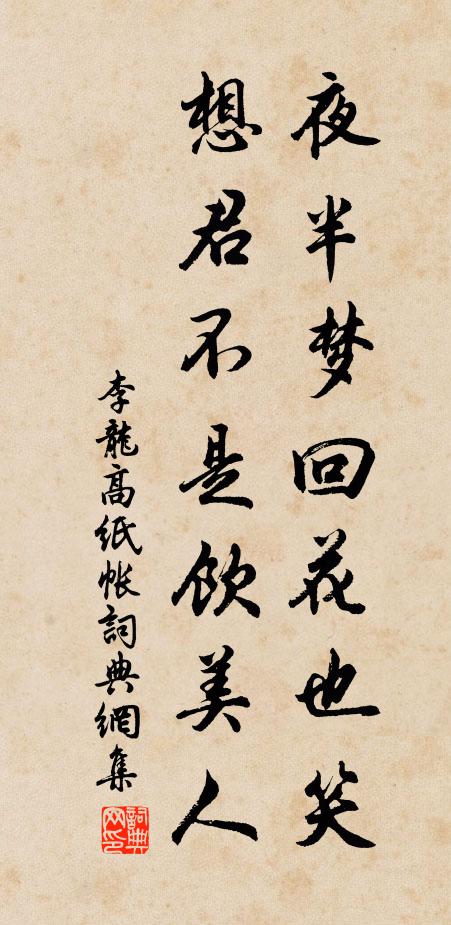 夜半梦回花也笑
想君不是饮美人
李龍高紙帐詞典網集
詞典网印